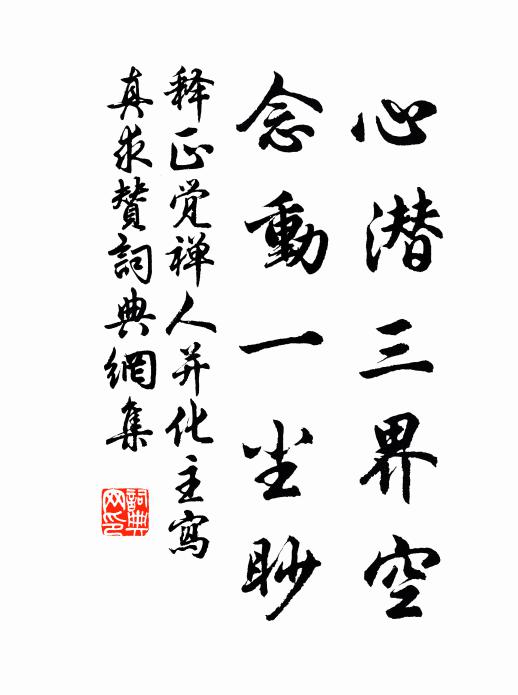 心潜三界空
念動一尘眇
释正觉禅人并化主寫
真求赞詞典網集
詞典网印